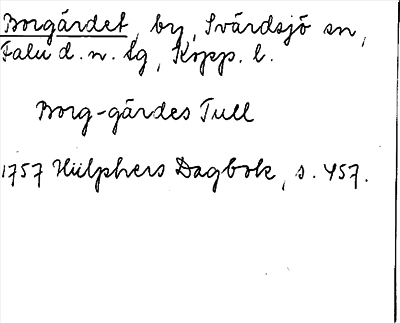 Borgärdet, by, Svärdsjö sn,
Falu d. n. tg, Kopp. l.
Borg-gärdes Tull
1757 Hülphers Dagbok, s. 457.